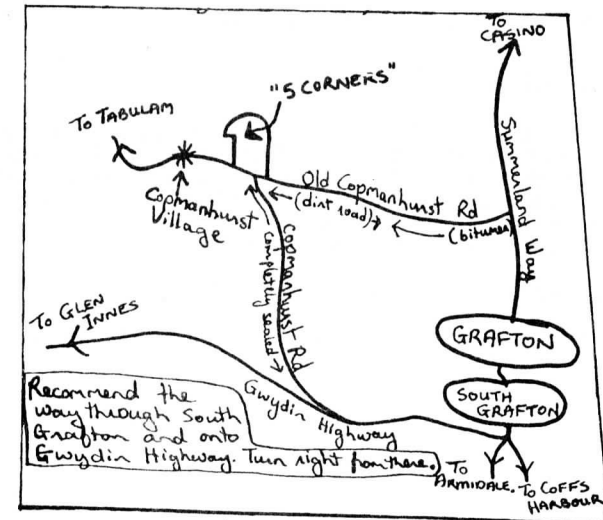 To
CASINO
"5 CORNERS"
To TABULAM
Summerland Way
Old Copmanhurst Rd
(dirt road)
(bitumen)
Copmanhurst
Village
Copmanhurst Rd
completely sealed
To GLEN
INNES
GRAFTON
SOUTH
GRAFTON
Gwydir Highway
Recommend the
way through South
Grafton and onto
Gwydir Highway. Turn right from there.
To
ARMIDALE.
To COFFS
HARBOUR